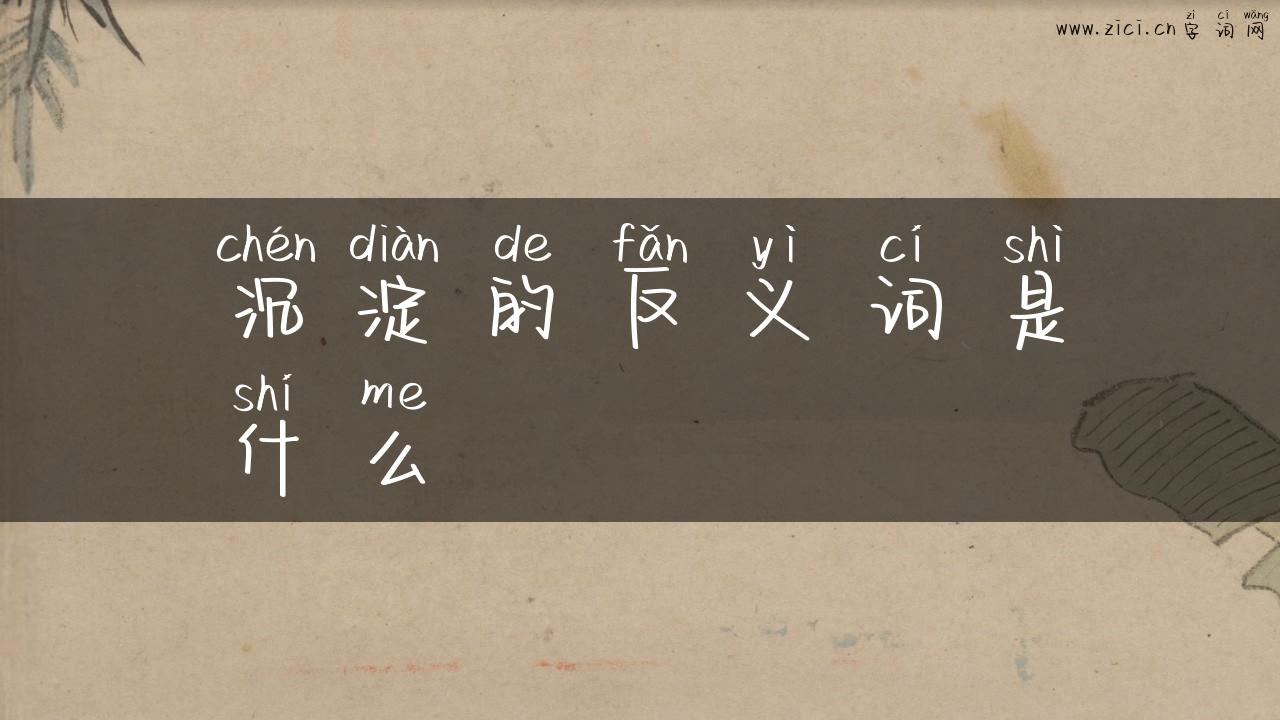 zì cí wǎng
www.zici.cn 字词网
chén diàn de fǎn yì cí shì
沉淀的反义词是
shí me
什么